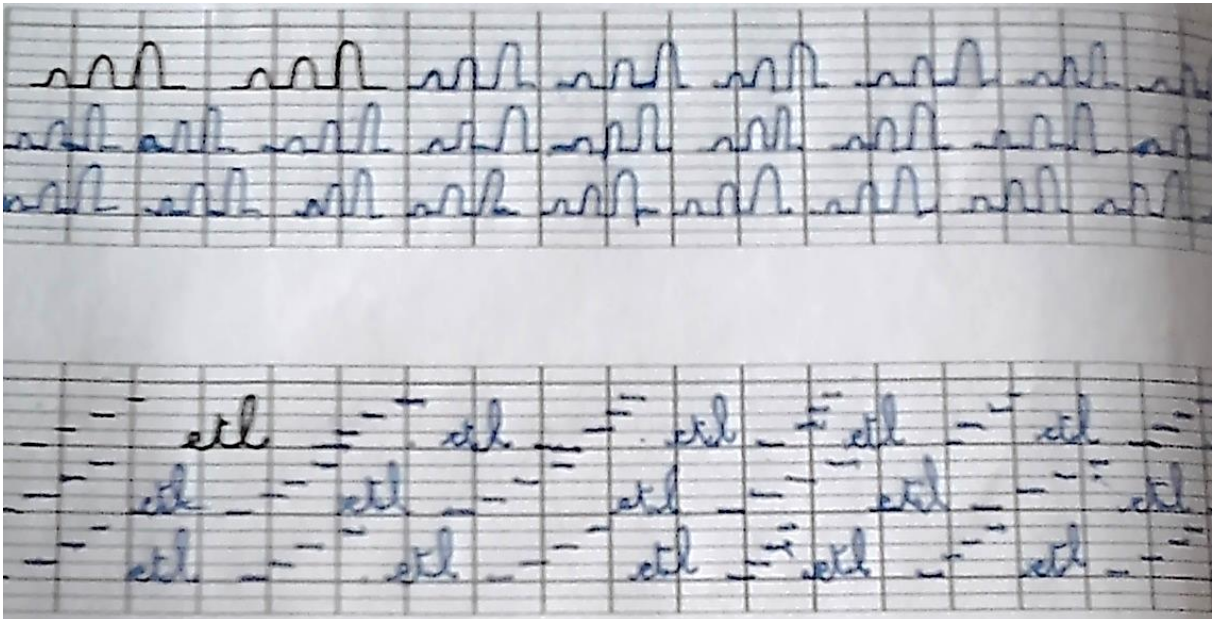 etl etl etl etl etl
etl etl etl etl etl
etl etl etl etl etl